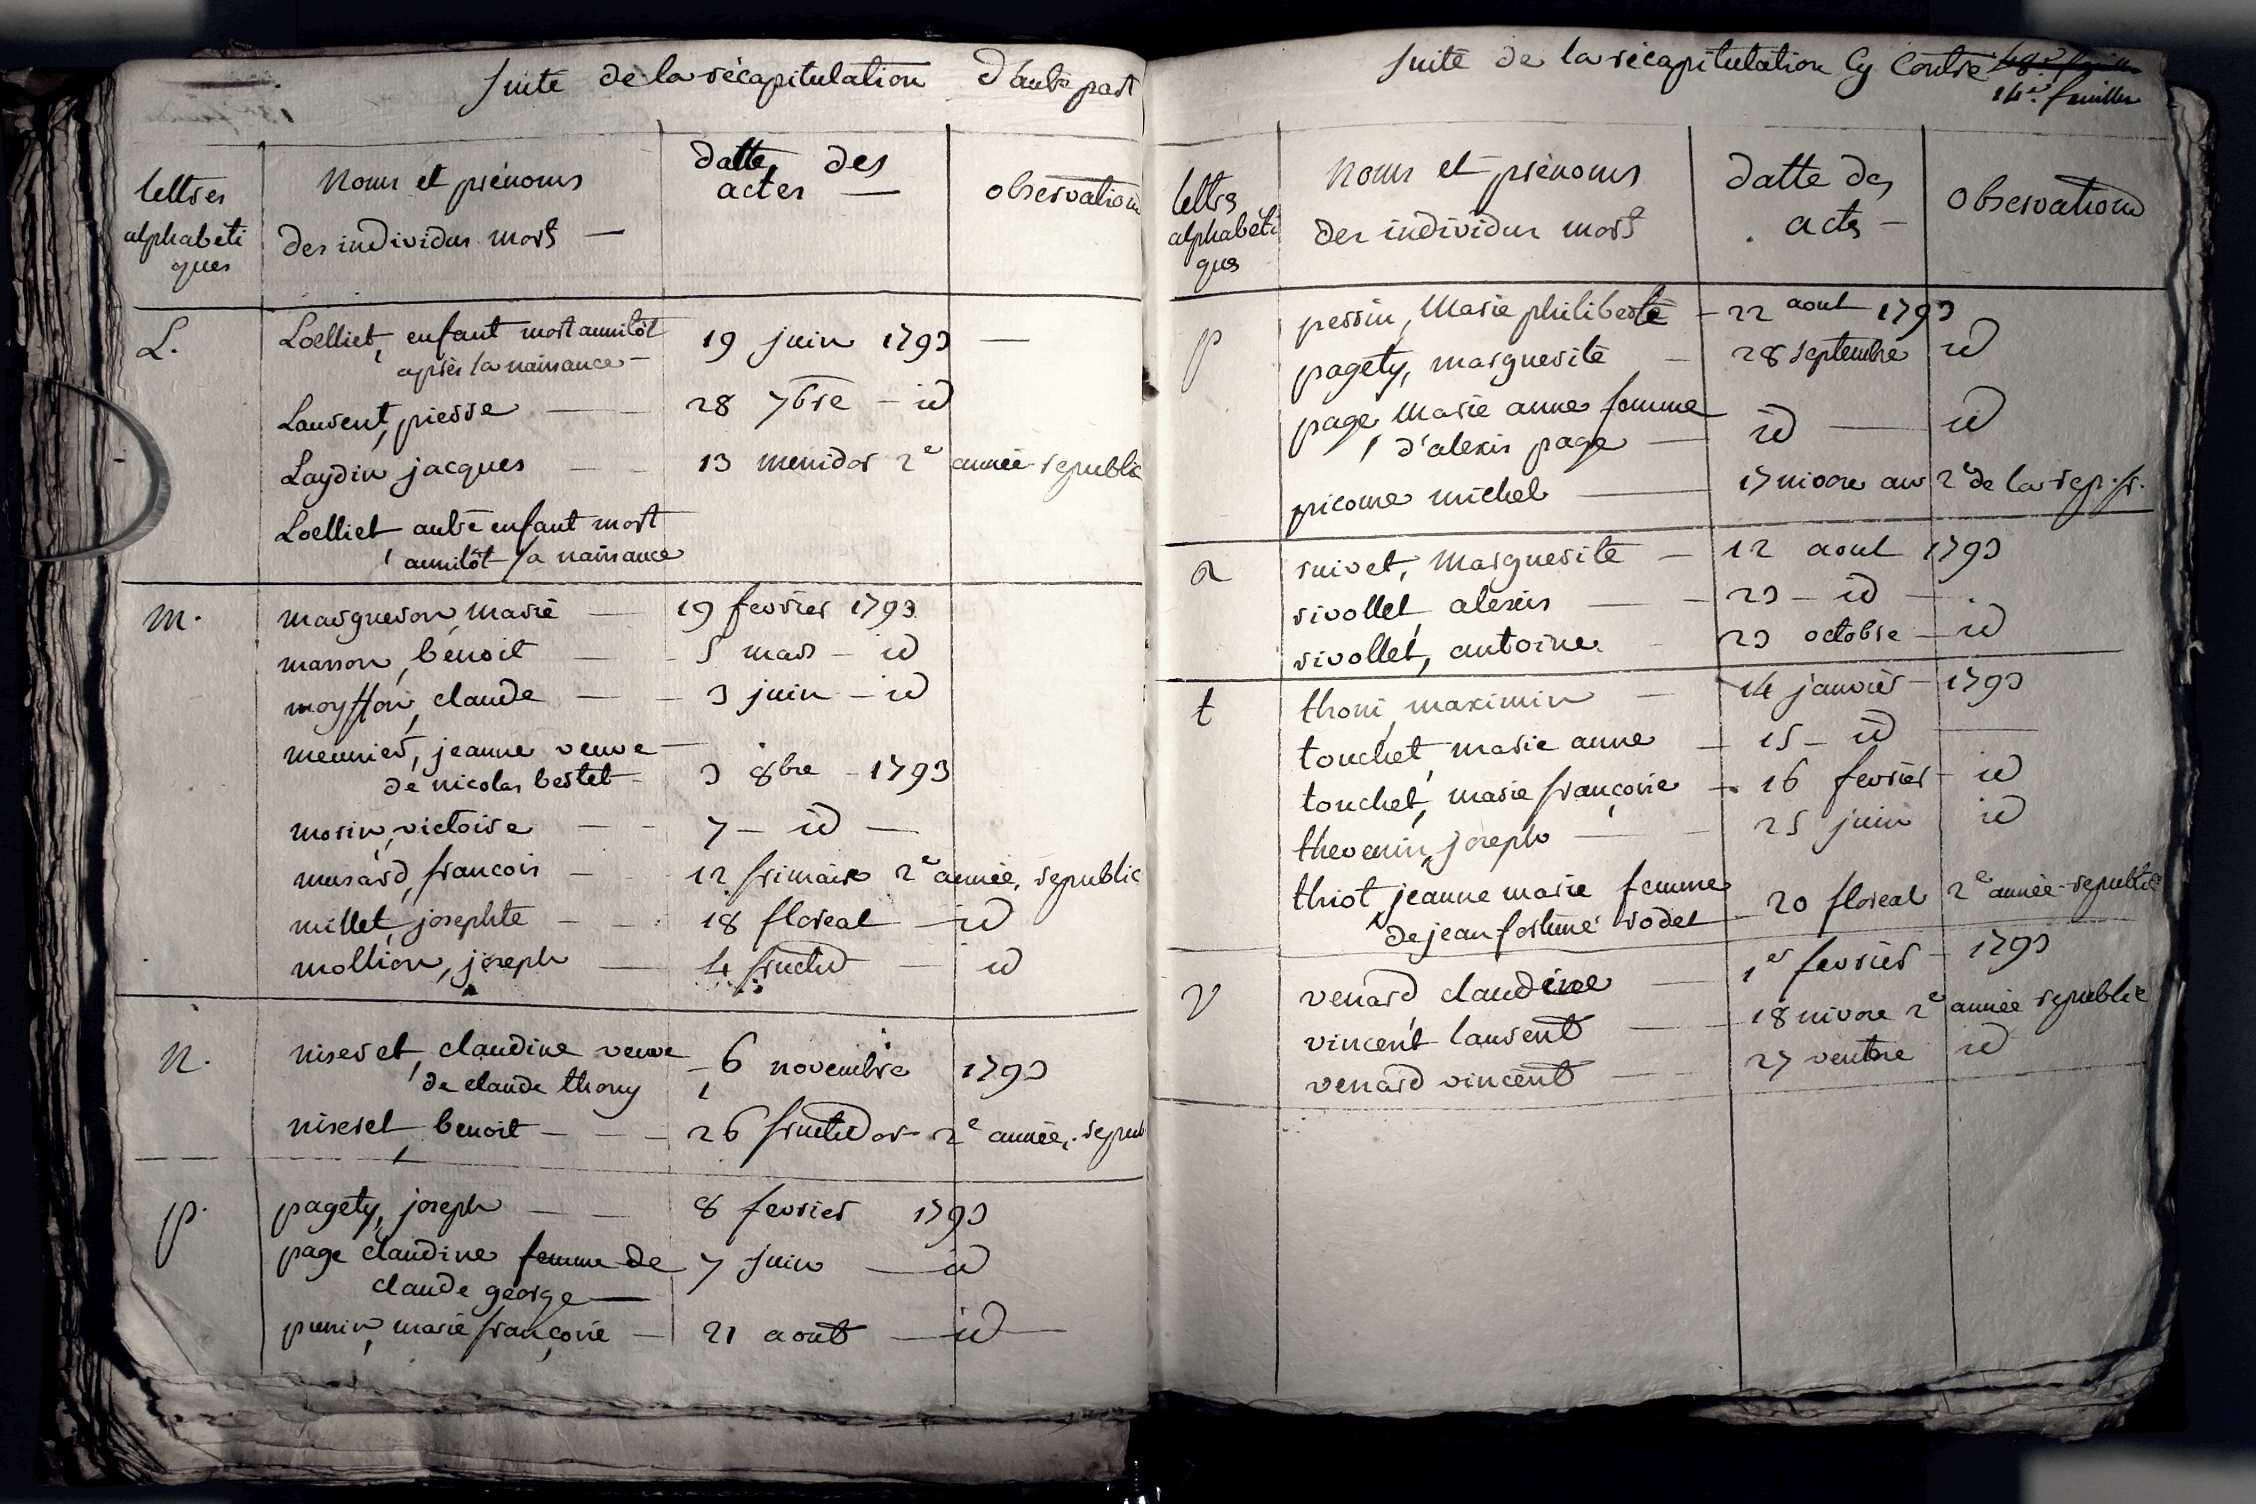 suite de la récapitulation d'autre part
lettres
alphabeti
ques
noms et prénoms
des individus morts —
datte des
actes —
observations
L.
Loelliet, enfant mort aussitôt
après sa naissance — 19 juin 1793 —
Laurent, pierre — 28 7bre — id
Laydin jacques — — 13 messidor 2e année republic
Loelliet autre enfant mort
aussitôt sa naissance
m.
margueron, marie — 19 fevrier 1793
masson, benoit — 5 mars — id
moyffon, claude — — 3 juin — id
meunier, jeanne veuve —
de nicolas bertet — 3 8bre — 1793
morin, victoire — — 7 — id —
musard, francois — 12 frimaire 2e année, republic
millet, josephte — — 18 floreal — id
mollion, joseph — 4 fructid — id
n.
niseret, claudine veuve — 6 novembre 1793
de claude thony
niseret, benoit — — — 26 fructidor 2e année, repub
p.
pagety, joseph — — 8 fevrier 1793
page claudine femme de 7 juin — id
claude george —
marie françoise — 21 aout — id —
suite de la récapitulation Cy Contre
14e. feuillet
lettres
alphabeti
ques
noms et prénoms
des individus morts
datte des
actes —
observations
p
pessin, Marie philiberte — 22 aout 1793
pagety, marguerite — 28 septembre id
page, Marie anne femme
d'alexis page — id — id
picome michel — 17 nivose an 2e de la rep. fr.
R
ruivet, Marguerite — 12 aout 1793
rivollet, alexis — — 23 — id —
rivollet, antoine — 23 octobre — id
t
thoni, maximin — 14 janvier — 1793
touchet, marie anne — 15 — id —
touchet, marie françoise — 16 fevrier — id
thevenin, joseph — — 25 juin id
thiot, jeanne marie femme
de jean fortuné rodet — 20 floreal 2e année republic
V
venard claudine — 1er fevrier — 1793
vincent laurent — — 18 nivose 2e année republic
venard vincent — — 27 ventose id